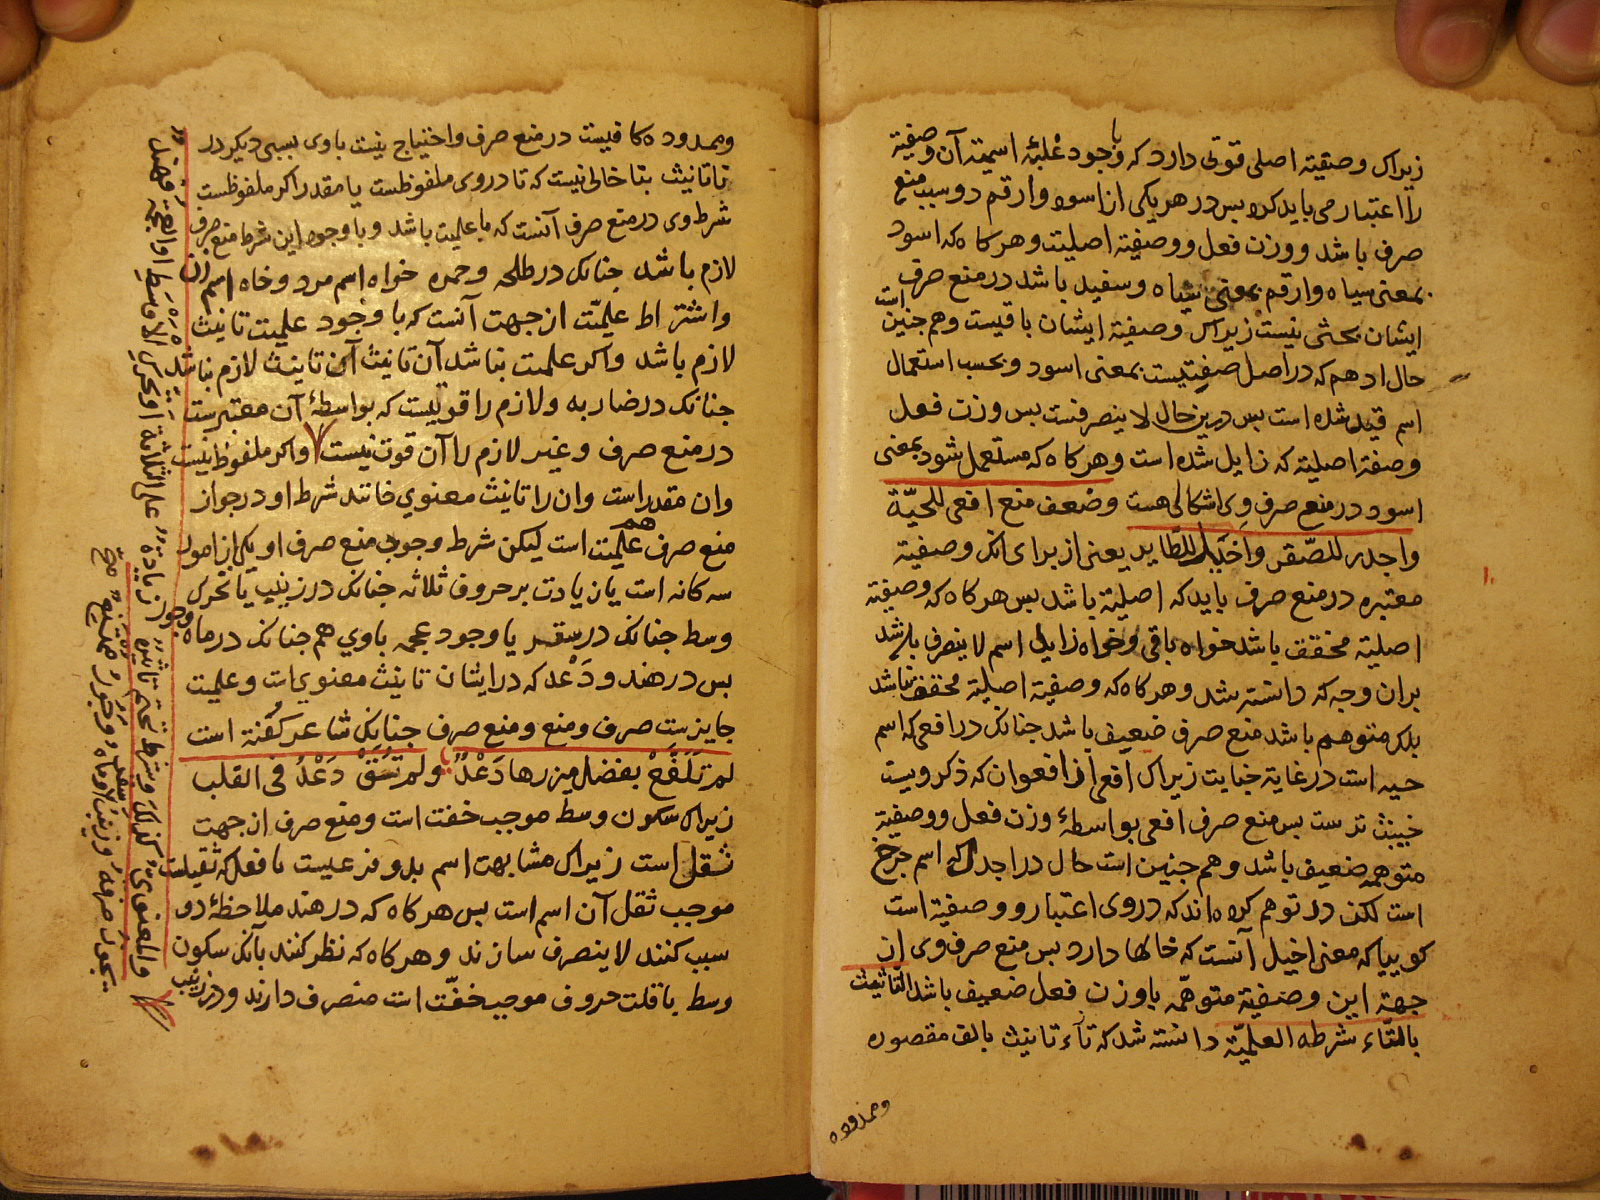 زیراک وصفیته اصلی قوتی دارد که با وجود غلبهٔ اسمیته آن وصفیته
را اعتبار می باید کرد بس در هر یکی از اسود و ارقم دو سبب منع
صرف باشد و وزن فعل و وصفیته اصلیت و هر کاه که اسود
بمعنی سیاه و ارقم بمعنی سیاه و سفید باشد در منع صرف
ایشان بحثی نیست زیراک وصفیته ایشان باقیست و هم جنین است
حال ادهم که در اصل صفتیست بمعنی اسود و بحسب استعمال
اسم قید شده است بس درین حال لا ینصرفست بس وزن فعل
وصفته اصلیته که زایل شده است و هر کاه که مستعمل شود بمعنی
اسود در منع صرف وی اشکالی هست وضعف منع افعی للحیّة
واجدر للصّقر واخیل للطایر یعنی از برای انک وصفیته
معتبره در منع صرف باید که اصلیته باشد بس هر کاه که وصفیته
اصلیته محقق باشد خواه باقی وخواه زایل اسم لا ینصرف باشد
بران وجه که دانسته شد و هر کاه که وصفیته اصلیته محقق نباشد
بلکه متوهم باشد منع صرف ضعیف باشد جنانک در افعی که اسم
حیه است در غایة خباثت زیراک افعی از افعوان که ذکر ویست
خبیث ترست بس منع صرف افعی بواسطهٔ وزن فعل و وصفیته
متوهمه ضعیف باشد و هم جنین است حال در اجدل که اسم جرخ
است لکن در توهم کرده اند که در وی اعتبار و وصفیته است
کوییا که معنی اخیل آنست که خالها دارد بس منع صرف وی از
جهته این وصفیته متوهّمه با وزن فعل ضعیف باشد التانیث
بالتّاء شرطه العلمیّة دانسته شد که تاء تانیث بالف مقصوره
وممدوده
وممدوده کافیست در منع صرف و احتیاج نیست با وی بسببی دیکر در
تا تانیث بتا خالی نیست که تا در وی ملفوظست یا مقدر اکر ملفوظست
شرط وی در منع صرف آنست که با علمیت باشد و با وجود این شرط منع صرف
لازم باشد جنانک در طلحه و حمزه خواه اسم مرد و خاه اسم زن
واشتراط علمیّت از جهت آنست که با وجود علمیت تانیث
لازم باشد و اکر علمیت نباشد آن تانیث آن تانیث لازم نباشد
جنانک در ضاربه و لازم را قوتیست که بواسطهٔ آن معتبرست
در منع صرف و غیر لازم را آن قوت نیست و اکر ملفوظ نیست
وان مقدر است وان را تانیث معنوی خانند شرط او در جواز
منع صرف هم علمیت است لیکن شرط وجوب منع صرف او یکی از امور
سه کانه است یا زیادت بر حروف ثلاثه جنانک در زینب یا تحرک
وسط جنانک در سقر یا وجود عجمه با وی هم جنانک در ماه وجور
بس در هند و دَعْد که در ایشان تانیث معنویست و علمیت
جایزست صرف و منع و منع صرف جنانک شاعر کفته است
لم تَتَلَفَّعْ بفضل میزرها دَعْدٌ ولم تُسْقَ دَعْدُ فی القلب
زیراک سکون وسط موجب خفت است و منع صرف از جهت
ثقل است زیراک مشابهت اسم بدو فرعیست با فعل که ثقیلست
موجب ثقل آن اسم است بس هر کاه که در هند ملاحظهٔ دو
سبب کنند لا ینصرف سازند و هر کاه که نظر کنند بآنک سکون
وسط با قلت حروف موجب خفّت است منصرف دارند و در زینب
والمعنویّ کذلک وشرط تحتم تاثیره زیادة علی الثلاثة او تحرک الاوسط او العجمة فهند
یجوز صرفه وزینب وسقر وماه وجور ممتنع صح